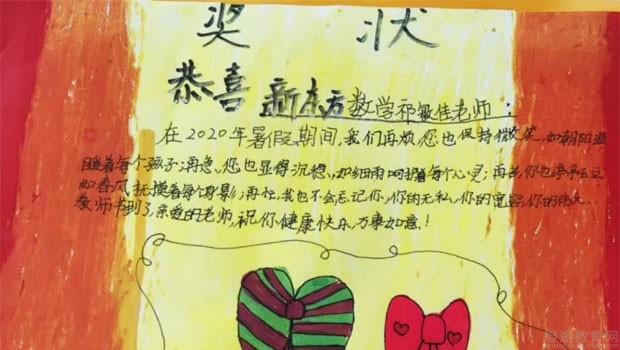 奖 状
恭喜 新东方数学祁敏佳老师:
在2020年暑假期间,我们再烦您也保持微笑,如朝阳温
暖着每个孩子;再急,您也显得沉稳,如细雨呵护着每个心灵;再苦,你也
如春风抚摸着每个身影;再忙,我也不会忘记你,你的无私,你的宽容,你的伟大.
教师节到了,亲爱的老师,祝你健康快乐,万事如意!
教育网